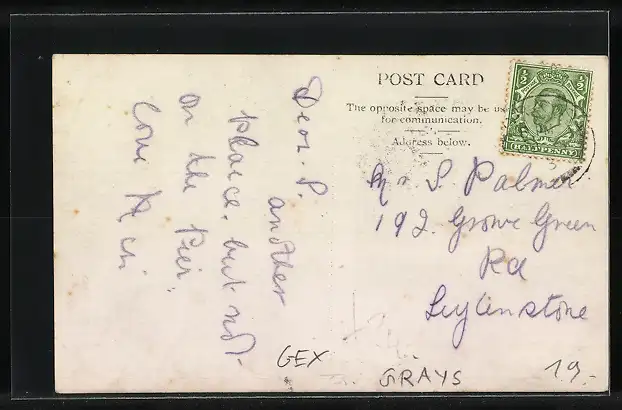 POST CARD
The opposite space may be
for communication.
Address below.
½ ½
HALFPENNY
Dear. P.
another
place. but not
on the Pier.
Love
S. Palmer
192. Grove Green
Rd
Leylinstone
GEX
GRAYS
19.-